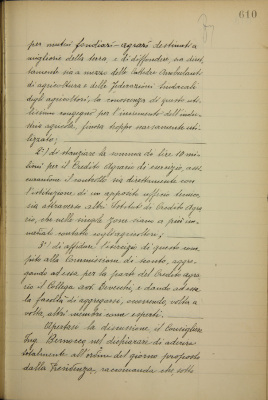 610
per mutui fondiari-agrari destinati a
migliorie della terra, e di diffondere, sia diret-
tamente sia a mezzo delle Cattedre Ambulanti
di agricoltura e delle Federazioni Sindacali
degli agricoltori, la conoscenza di questo uti-
lissimo congegno per l'incremento dell'indu-
stria agricola, finora troppo scarsamente uti-
lizzato;
2°) di stanziare la somma di lire 10 mi-
lioni per il Credito Agrario di esercizio, assi-
curandone il controllo sia direttamente con
l'istituzione di un apposito ufficio tecnico,
sia attraverso altri Istituti di Credito Agra-
rio, che nelle singole zone siano a più im-
mediato contatto cogli agricoltori;
3°) di affidare l'esercizio di questo com-
pito alla Commissione di sconto, aggre-
gando ad essa, per la parte del Credito Agra-
rio il Collega avv. e dando ad essa
la facoltà di aggregarsi, occorrendo, volta a
volta, altri membri come esperti.
Apertasi la discussione, il Consigliere
Ing. Bernocco nel dichiarare di aderire
totalmente all'ordine del giorno proposto
dalla Presidenza, raccomanda che sotto